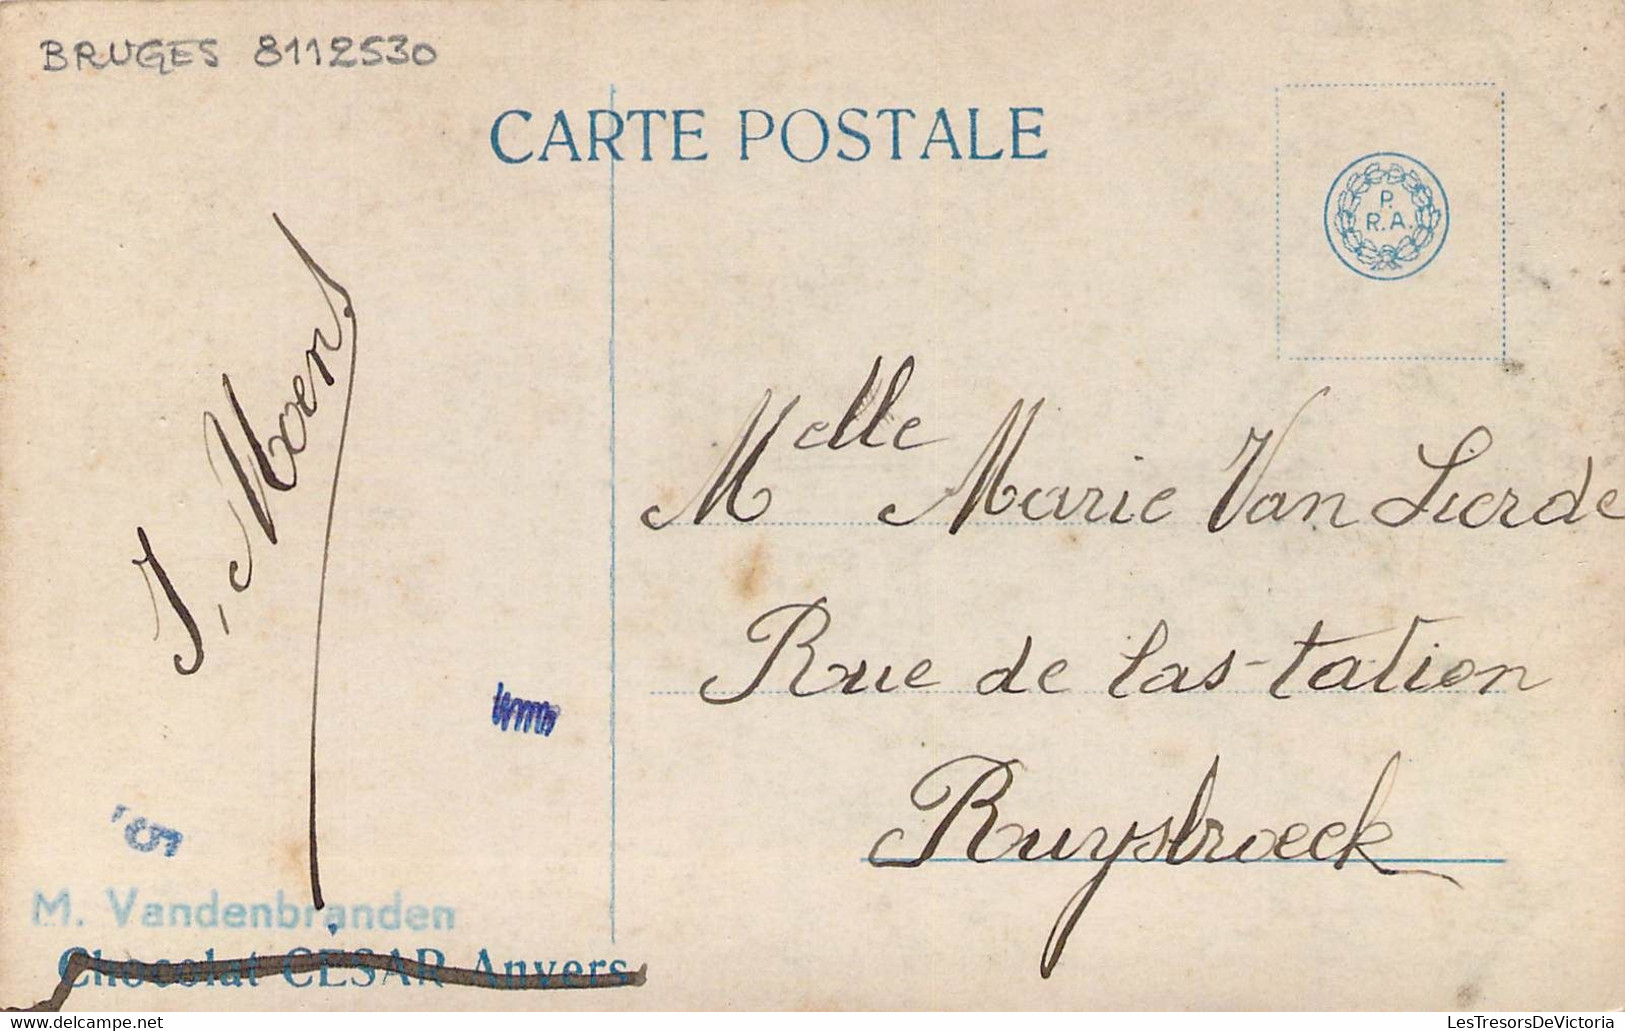 BRUGES 8112530
CARTE POSTALE
P.
R.A.
J. Moens
Melle Marie Van Lierde
Rue de las-tation
Ruysbroeck
5
M. Vandenbranden
Chocolat CÉSAR Anvers
LesTresorsDeVictoria